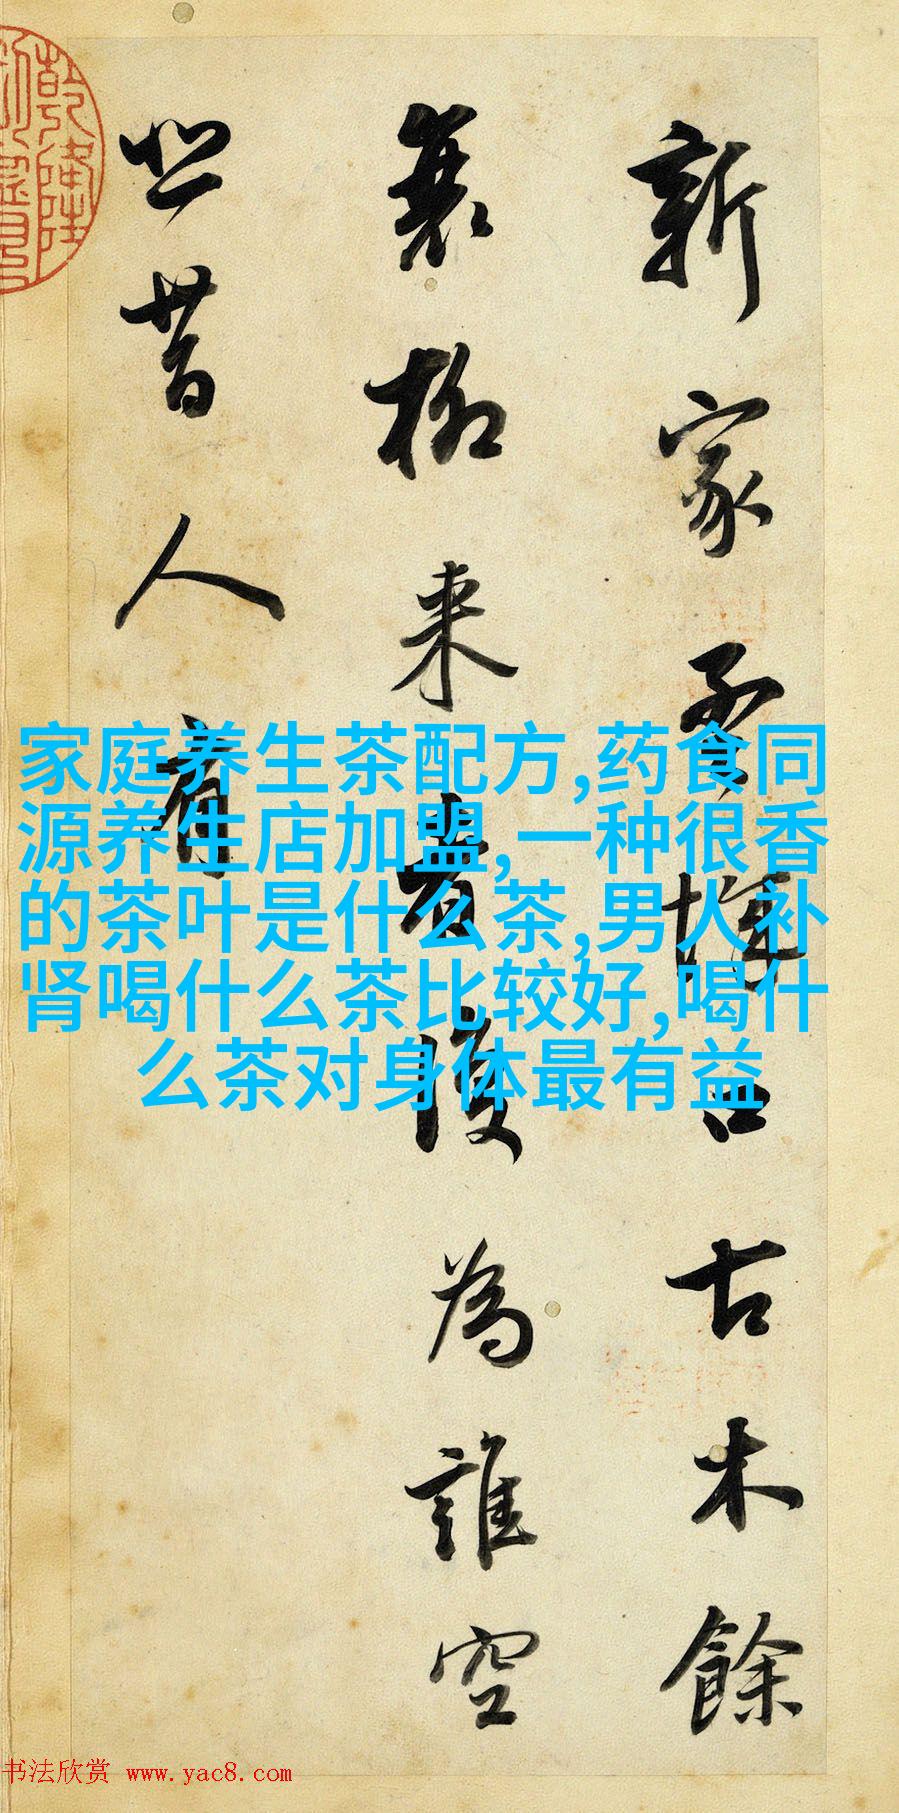 新家孟城口古木餘
衰柳来者復為誰空
悲昔人有
乾隆
家庭养生茶配方,药食同
源养生店加盟,一种很香
的茶叶是什么茶,男人补
肾喝什么茶比较好,喝什
么茶对身体最有益
书法欣赏 www.yac8.com